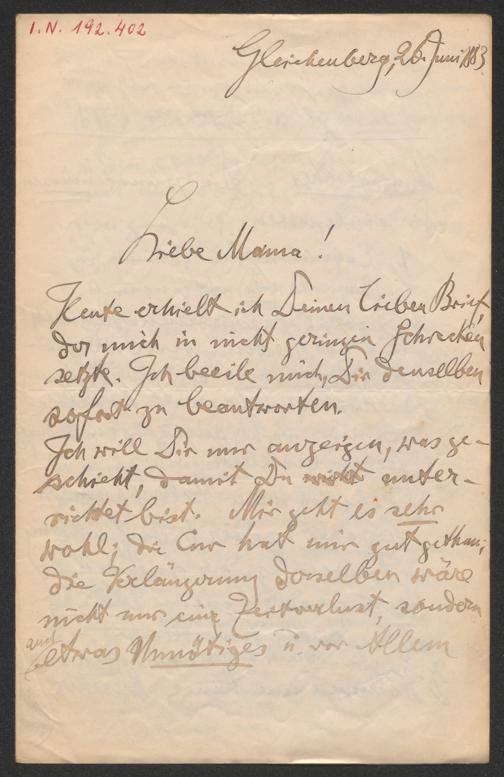 I.N. 192.402
Gleichenberg, 26. Juni 1883.
Liebe Mama!
Heute erhielt ich Deinen lieben Brief,
der mich in nicht geringen Schrecken
setzte. Ich beeile mich, Dir denselben
sofort zu beantworten.
Ich will Dir nur anzeigen, was ge-
schieht, damit Du nicht unter-
richtet bist. Mir geht es sehr
wohl; die Cur hat mir gut gethan;
die Verlängerung derselben wäre
nicht nur ein Zeitverlust, sondern
auch
etwas Unnötiges u. vor Allem